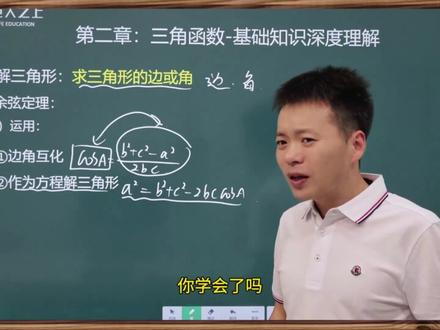 人之上
LIFE EDUCATION
第二章：三角函数-基础知识深度理解
解三角形：求三角形的边或角 边.角
余弦定理：
）运用：
①边角互化 cosA = b²+c²-a² / 2bc
②作为方程解三角形 a² = b²+c²-2bc cosA
你学会了吗